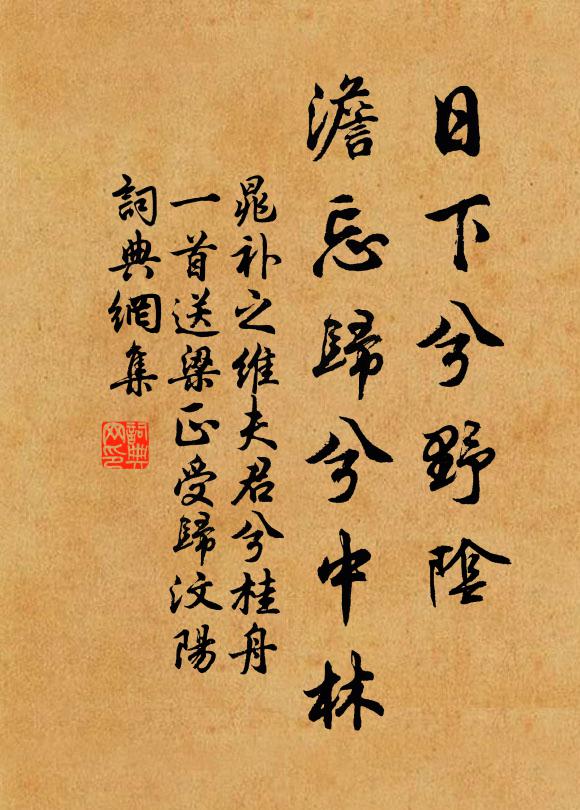 日下兮野陰
澹忘歸兮中林
晁补之維夫君兮桂舟
一首送梁正受歸汶陽
詞典網集
詞典网印